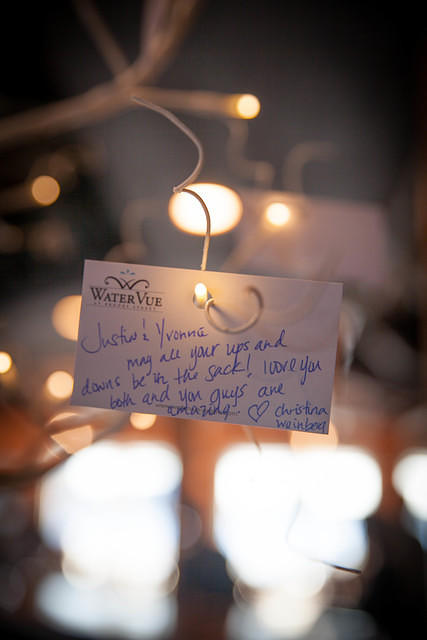 WATERVUE
Justin & Yvonne
may all your ups and
downs be in the sack! I love you
both and you guys are
amazing! ♡ Christina